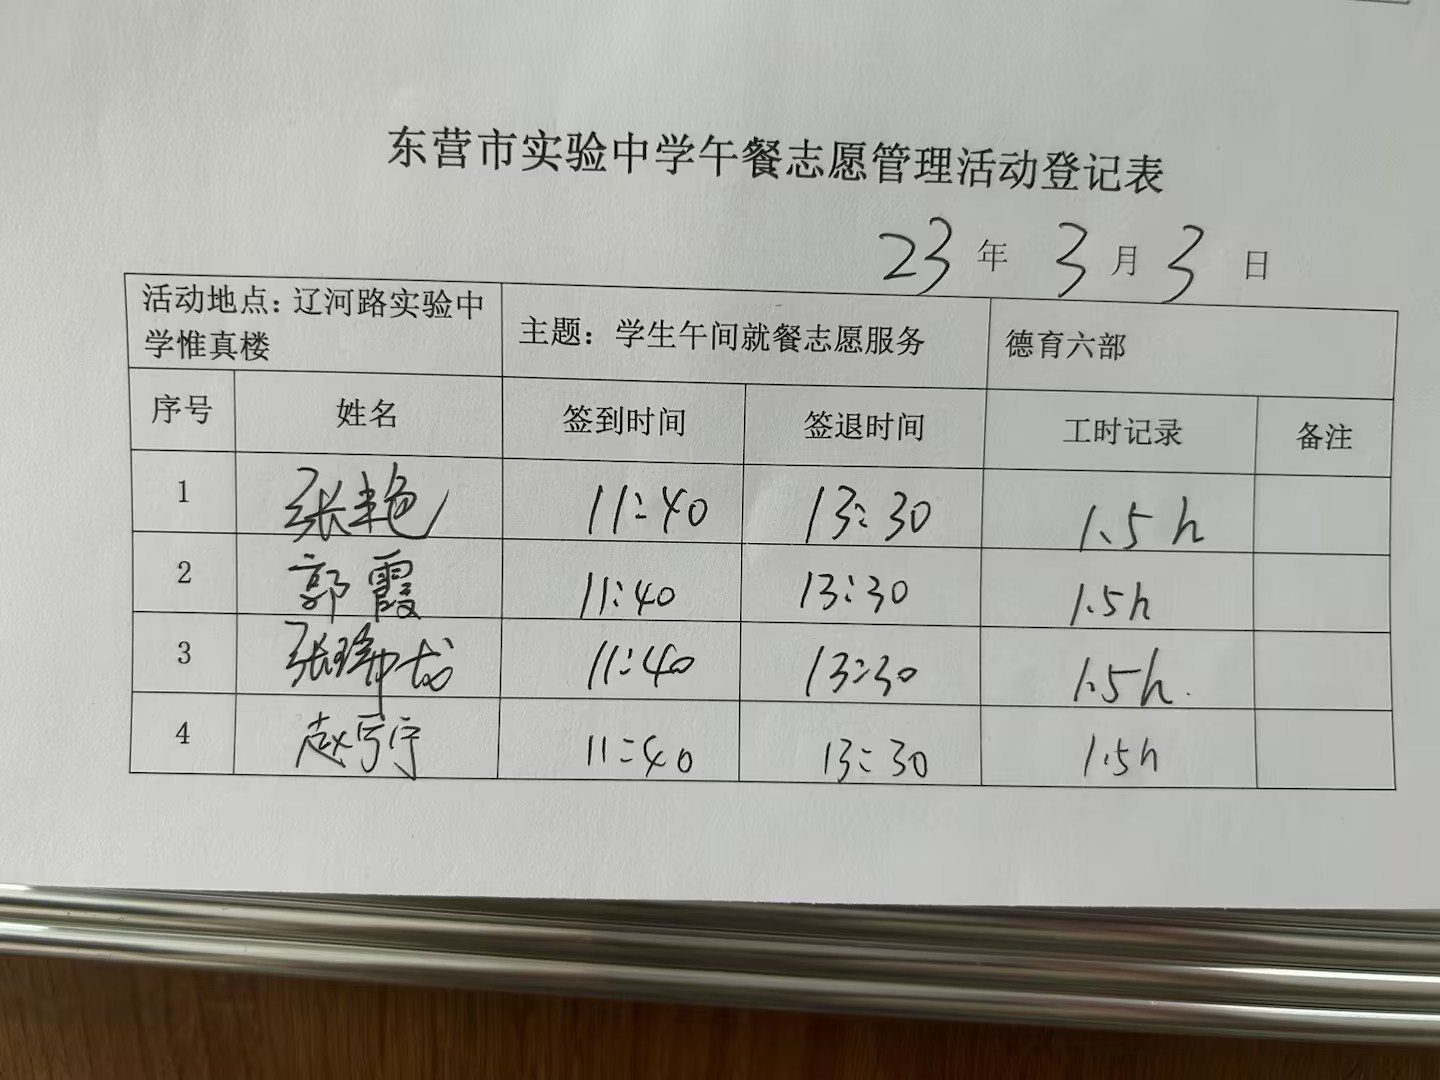 东营市实验中学午餐志愿管理活动登记表
23年 3月 3日
活动地点：辽河路实验中
学惟真楼
主题：学生午间就餐志愿服务
德育六部
序号 姓名 签到时间 签退时间 工时记录 备注
1 张艳 11:40 13:30 1.5h
2 郭霞 11:40 13:30 1.5h
3 张 11:40 13:30 1.5h.
4 赵 11:40 13:30 1.5h